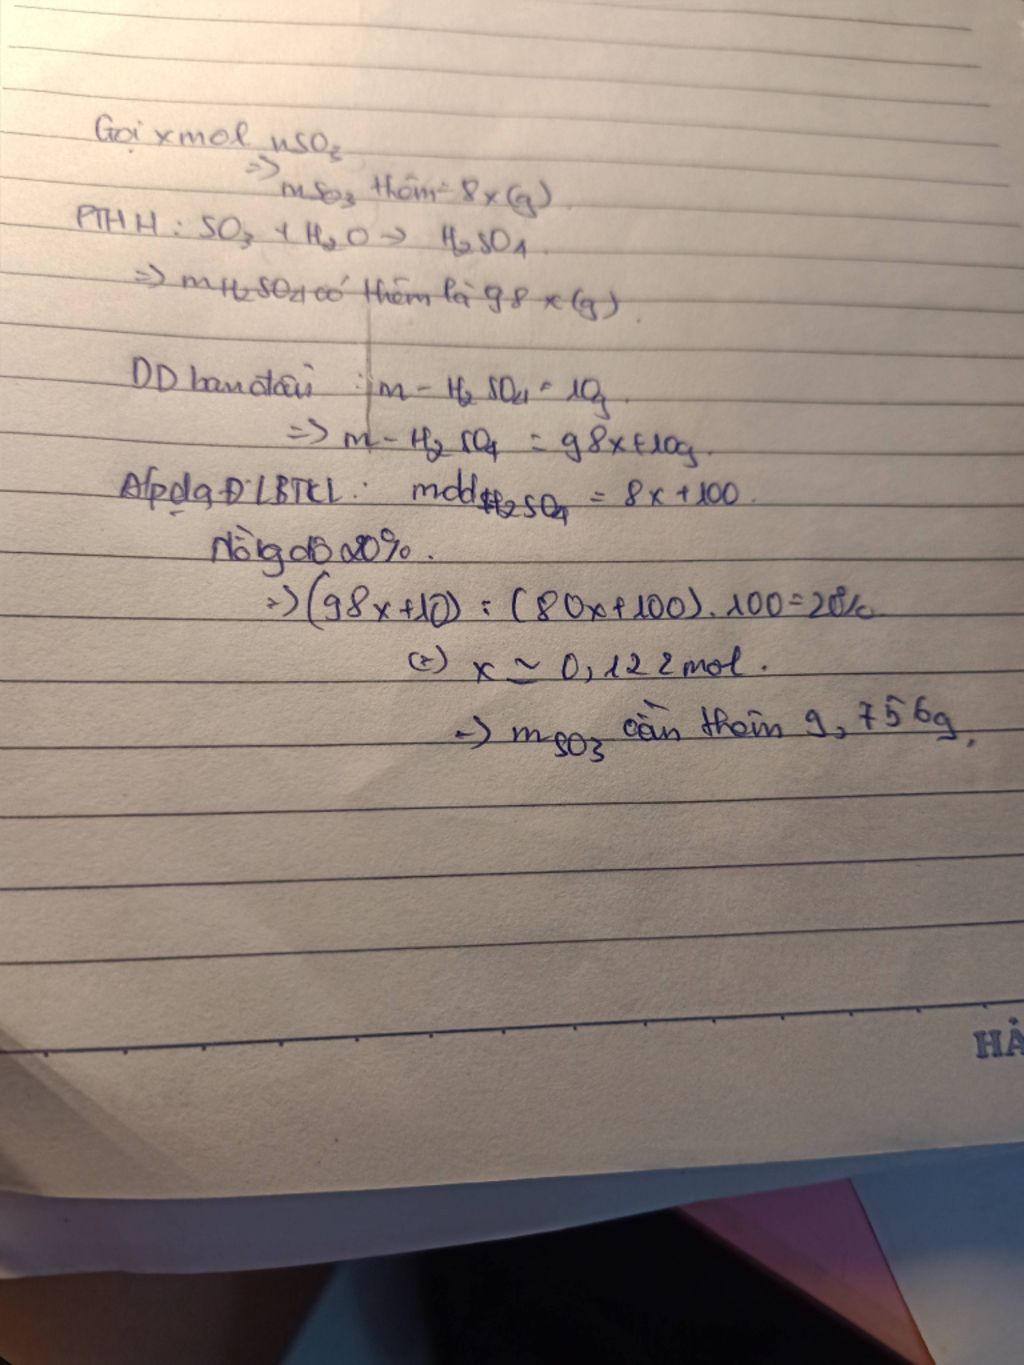 Gọi x mol nSO3
=> mSO3 thêm = 8x(g).
PTHH : SO3 + H2O -> H2SO4.
=> mH2SO4 có thêm là 98x(g).
DD ban đầu : m - H2SO4 = 10g.
=> m - H2SO4 = 98x+10g.
Áp dg ĐLBTKL: mddH2SO4 = 8x+100.
Nồg độ 20%.
=> (98x+10) : (80x+100).100=20%
(=) x ≃ 0,122mol.
=> mSO3 cần thêm 9,756g.
HẢ